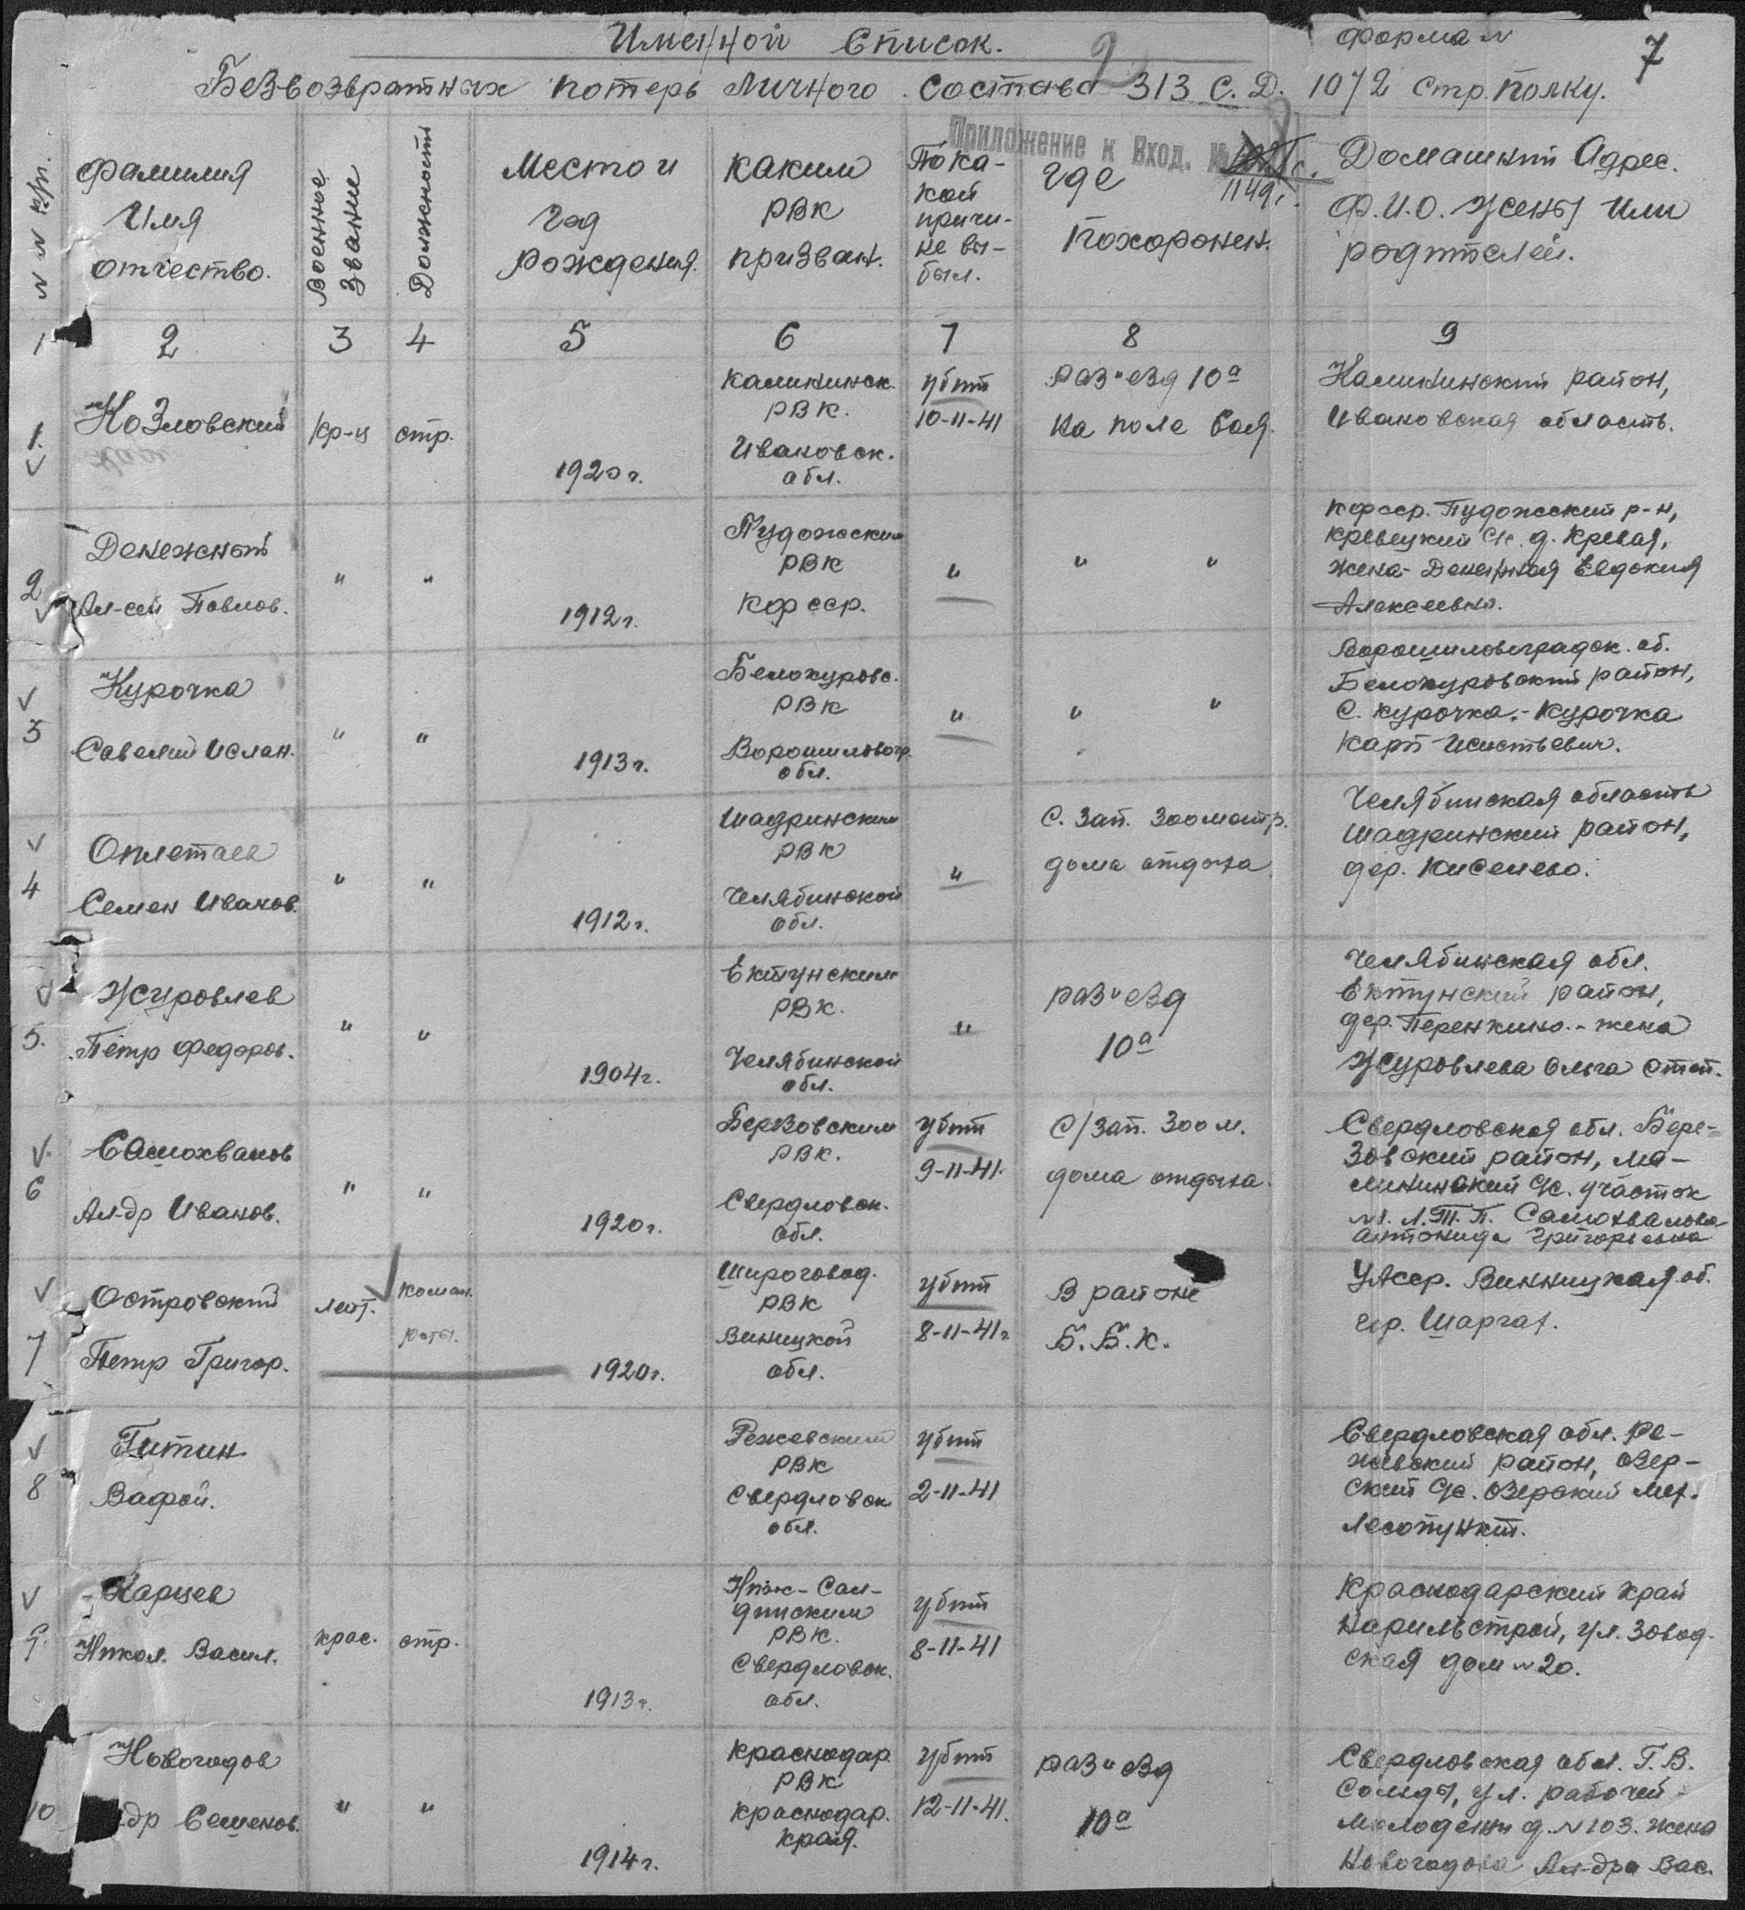 Именной Список. 2 Форма № 7
Безвозвратных потерь личного состава 313 С.Д. 1072 стр. полку.
Приложение к Вход. № с.
1149с.
№ № п/п.
Фамилия
Имя
отчество.
Военное
Звание
Должность
Место и
год
рождения.
каким
РВК
призван.
По ка-
кой
причи-
не вы-
был.
где
похоронен.
Домашний Адрес.
Ф.И.О. жены или
родителей.
1 2 3 4 5 6 7 8 9
1.
Козловский
кр-ц стр.
1920 г.
Калининск.
РВК.
Ивановск.
обл.
убит
10-11-41
раз"езд 10а
на поле боя.
Калининский район,
Ивановская область.
2
Денежной
Ал-сей Павлов.
" "
1912 г.
Пудожским
РВК
Кфсср.
"
" "
Кфсср. Пудожский р-н,
Кревецкий с/с. д. Кревая,
жена - Денежная Евдокия
Алексеевна.
3
Курочка
Савелий Ислан.
" "
1913 г.
Белокуровс.
РВК
Ворошиловогр.
обл.
"
" "
Ворошиловоградск. об.
Белокуровский район,
с. Курочка. - Курочка
Карп
4
Оплетаев
Семен Иванов.
" "
1912 г.
Шадринским
РВК
Челябинской
обл.
"
С. Зап. 300 мотр.
дома отдыха
Челябинская область
Шадринский район,
дер. Киселево.
5.
Журовлев
Пётр Федоров.
" "
1904 г.
Ектунским
РВК.
Челябинской
обл.
"
раз"езд
10а
Челябинская обл.
Ектунский район,
дер. Перенкино. - жена
Журовлева Ольга Степ.
6
Самохвалов
Ал-др Иванов.
" "
1920 г.
Берзовским
РВК.
Свердловск.
обл.
убит
9-11-41.
С/Зап. 300 м.
дома отдыха.
Свердловская обл. Бере-
зовский район, Ма-
лининский с/с. участок
Л.Т.П. Самохвалова
Антонида Григорьевна
7
Островский
Петр Григор.
лейт. коман.
роты.
1920 г.
Широговод.
РВК
Виницкой
обл.
убит
8-11-41 г
В районе
Б.Б.К.
УАсср. Винницкая об.
гор. Шаргат.
8
Гитин
Вафой.
Режевский
РВК
Свердловск
обл.
убит
2-11-41
Свердловская обл. Ре-
жевский район, Озер-
ский с/с. Озерский мех.
лесопункт.
9.
Карцев
Никол. Васил.
крас. стр.
1913 г.
Ниж-Сал-
динским
РВК.
Свердловск.
обл.
убит
8-11-41
Краснодарский край
Нарильстрой, ул. Завод-
ская дом № 20.
10
Новогодов
др Семенов.
" "
1914 г.
Краснодар
РВК
Краснодар.
края.
убит
12-11-41.
раз"езд
10а
Свердловская обл. Г. В.
Солды, ул. рабочей
молодежи д. № 103. жена
Новогодова Ал-дра Вас.